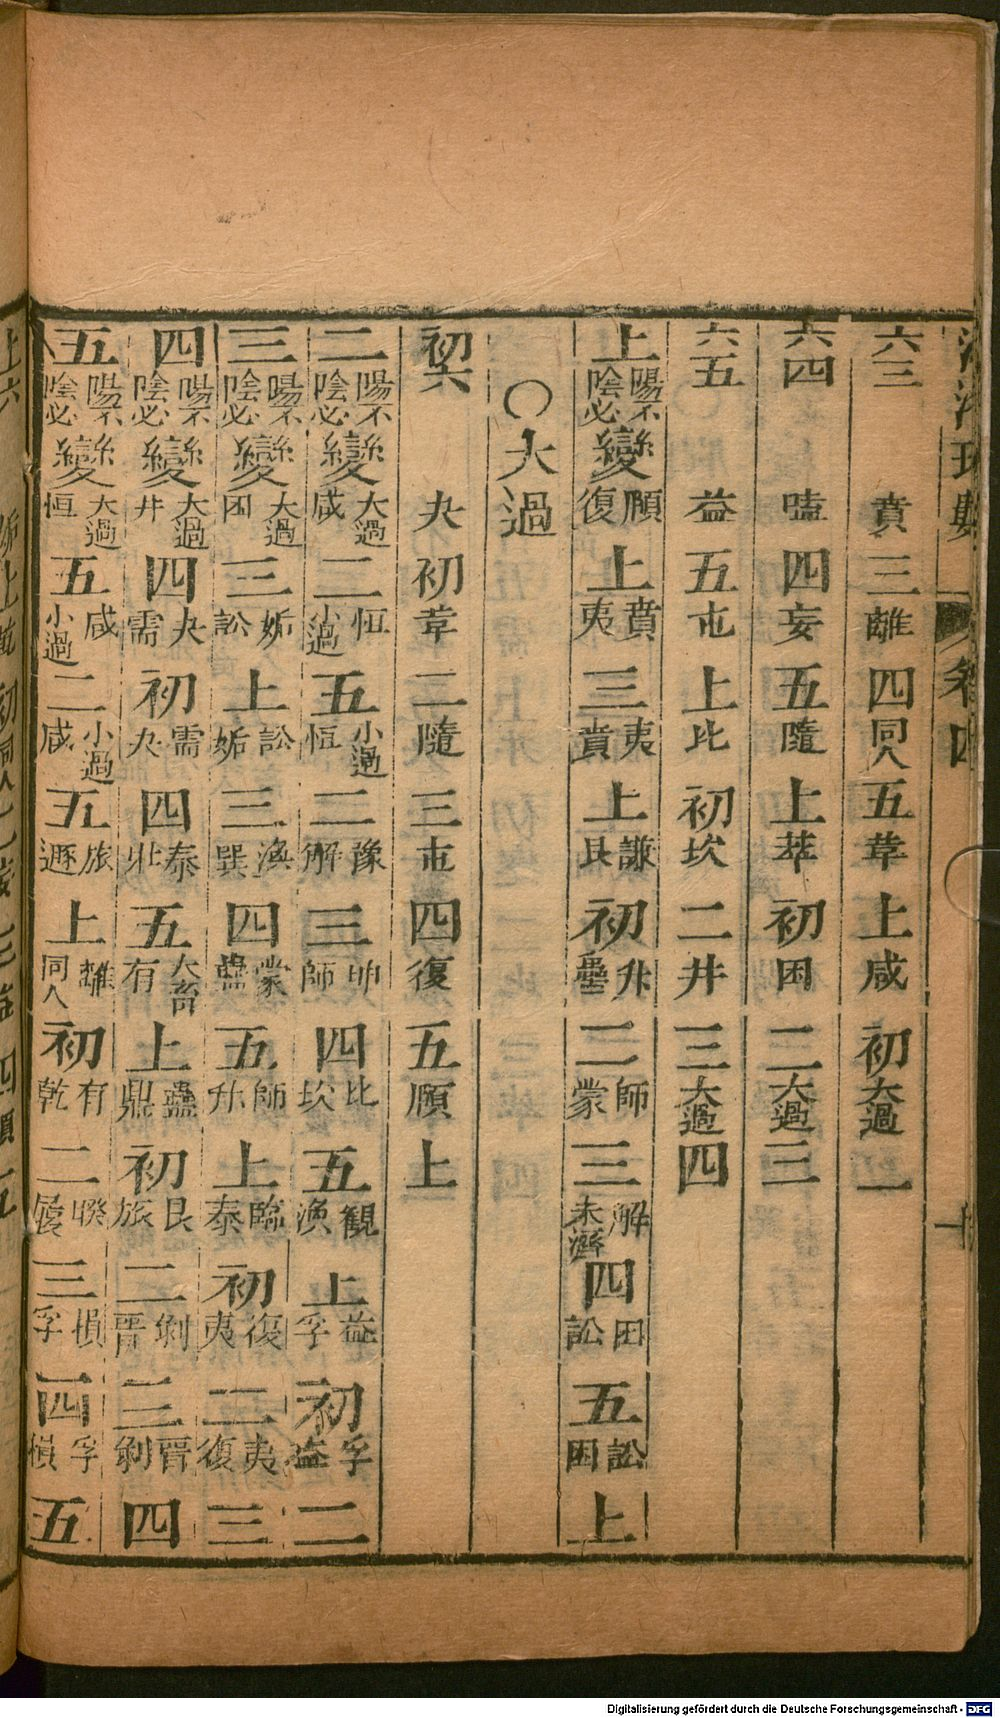 河洛理數 卷四 十
六三 賁 三 離 四 同人 五 革 上 咸 初 大過 二
六四 嗑 四 妄 五 隨 上 萃 初 困 二 大過 三
六五 益 五 屯 上 比 初 坎 二 井 三 大過 四
上 陽不陰必變 頤復 上 賁夷 三 夷賁 上 謙艮 初 升蠱 二 師蒙 三 解未濟 四 困訟 五 訟困 上
○大過
初六 夬 初 革 二 隨 三 屯 四 復 五 頤 上
二 陽不陰必變 大過咸 二 恒小過 五 小過恒 二 豫解 三 坤師 四 比坎 五 觀渙 上 益孚 初 孚益 二
三 陽不陰必變 大過困 三 姤訟 上 訟姤 三 渙巽 四 蒙蠱 五 師升 上 臨泰 初 復夷 二 夷復 三
四 陽不陰必變 大過井 四 夬需 初 需夬 四 泰壯 五 大畜有 上 蠱鼎 初 艮旅 二 剝晉 三 晉剝 四
五 陽不陰必變 大過恒 五 咸小過 二 小過咸 五 旅遯 上 離同人 初 有乾 二 睽履 三 損孚 四 孚損 五
上六 姤 上 乾 初 同人 二 妄 三 益 四 頤 五
Digitalisierung gefördert durch die Deutsche Forschungsgemeinschaft - DFG